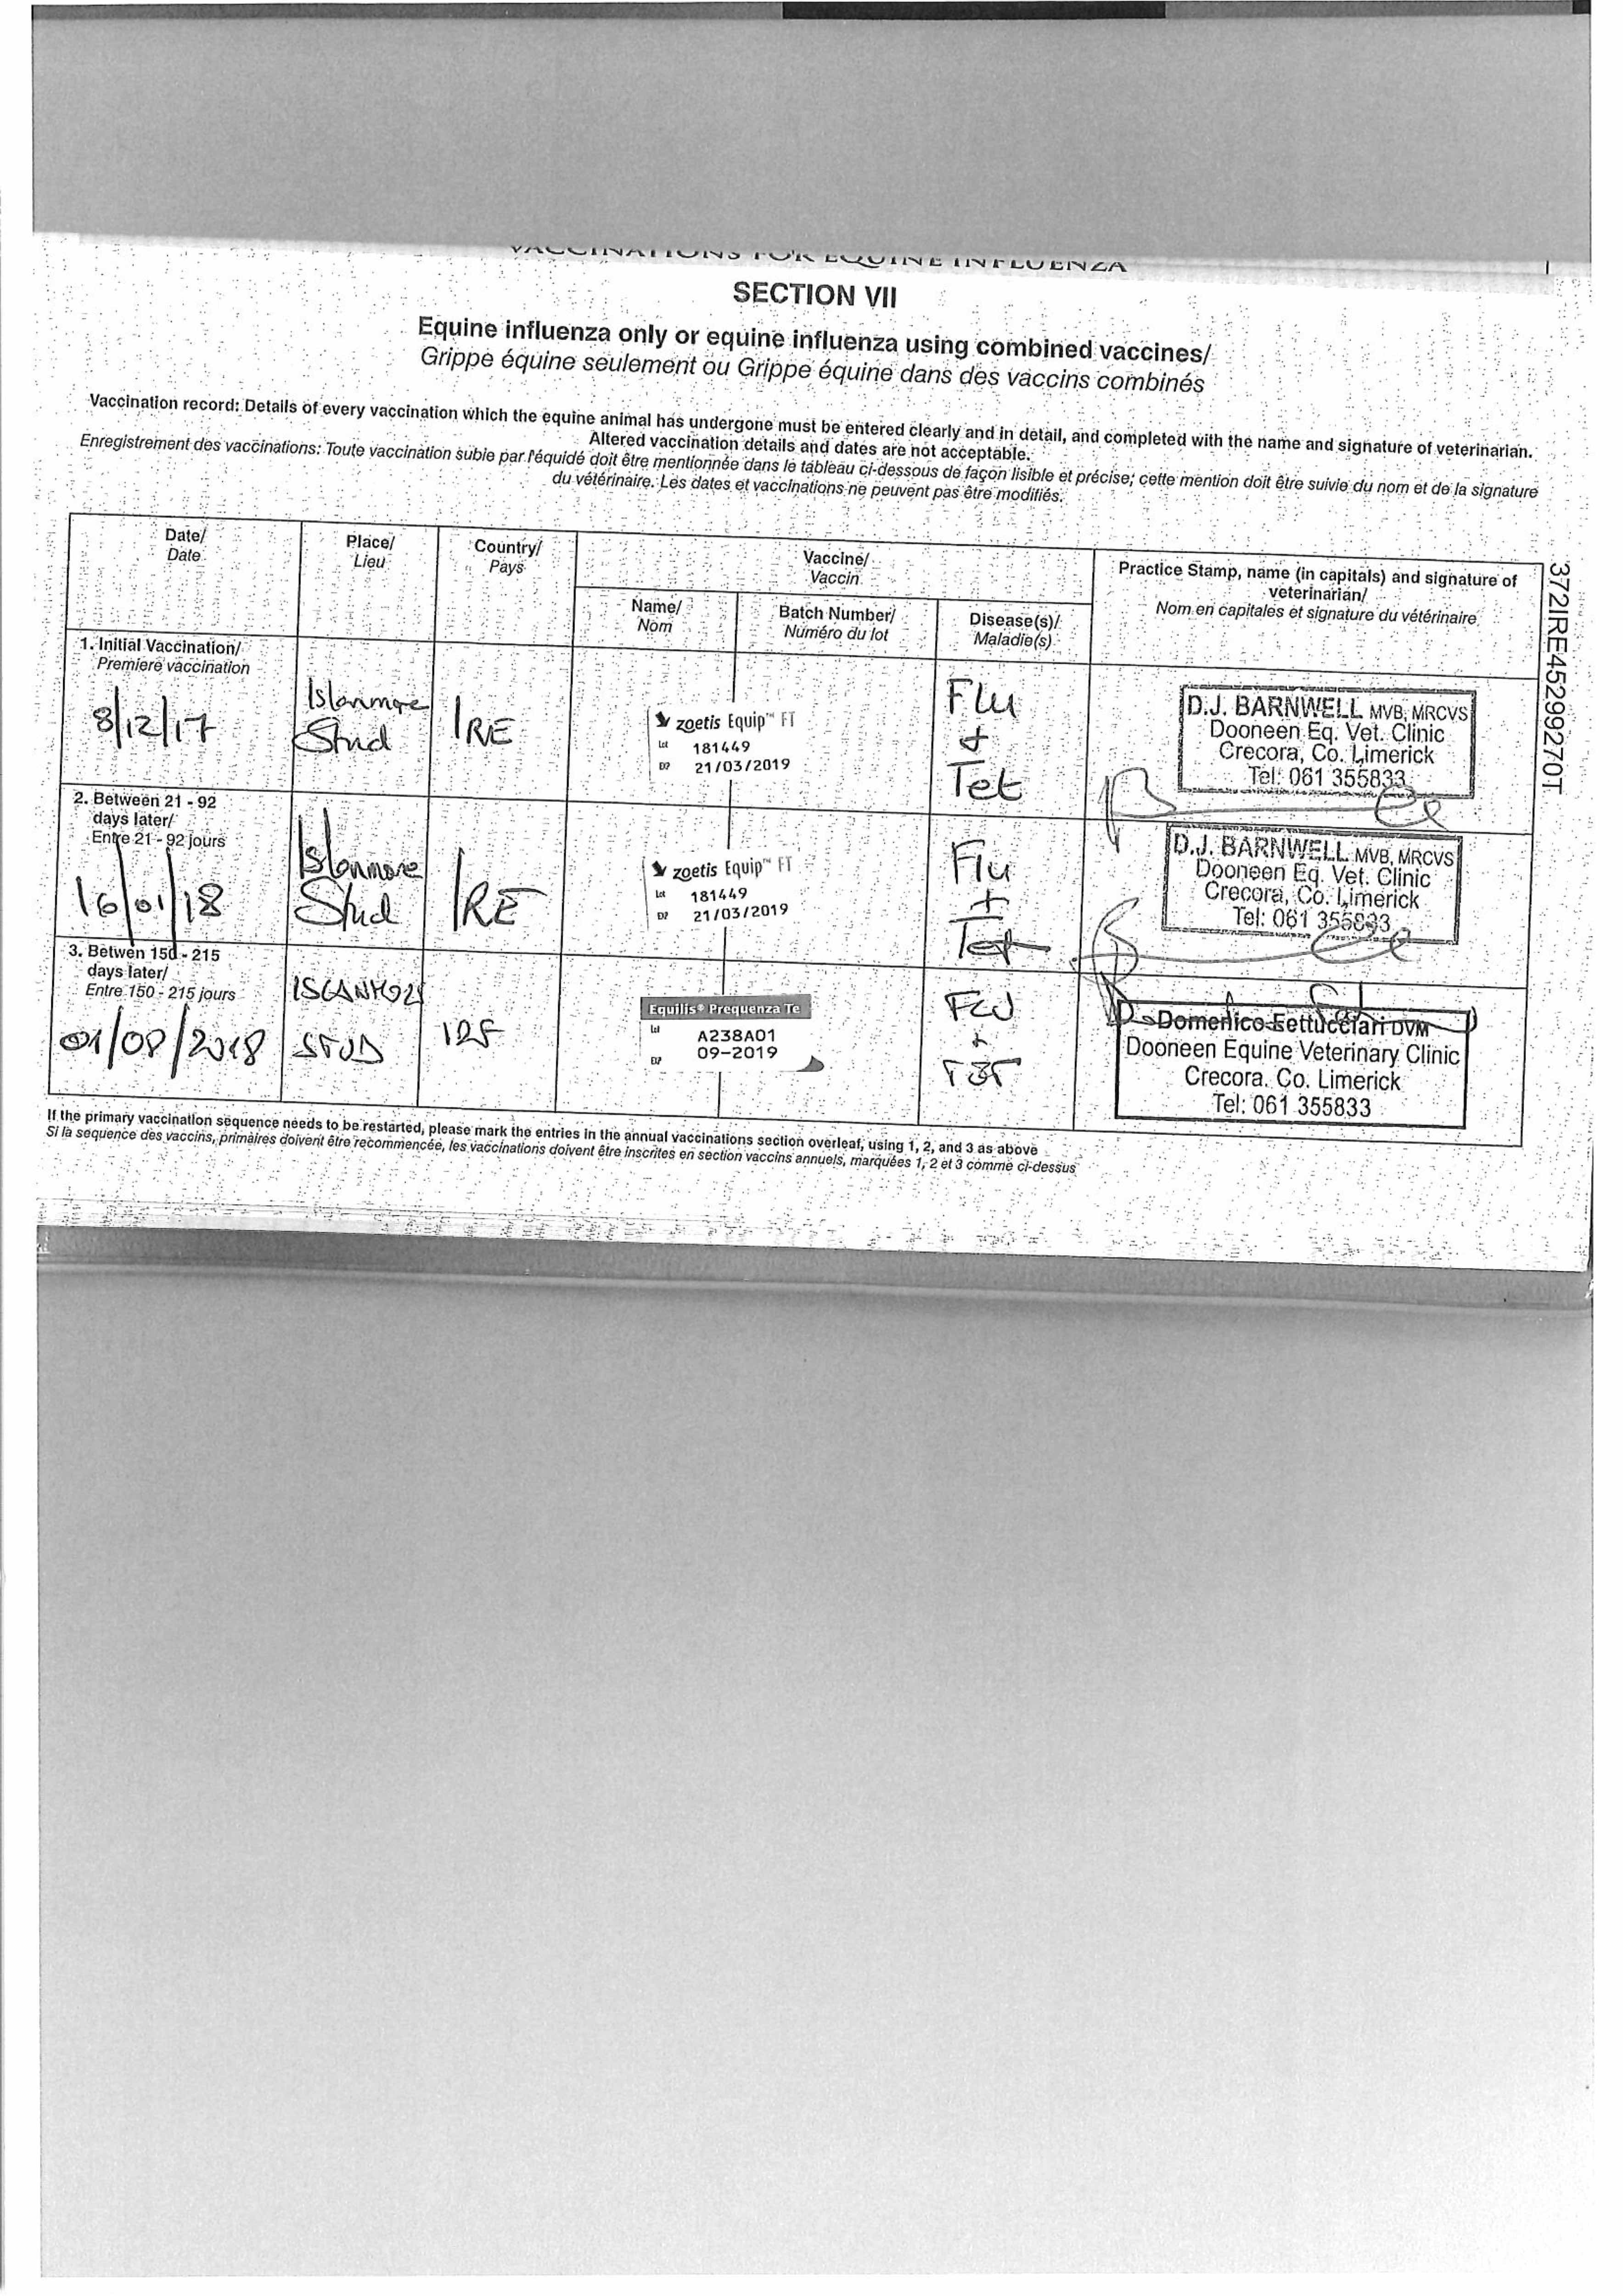 VACCINATIONS FOR EQUINE INFLUENZA
SECTION VII
Equine influenza only or equine influenza using combined vaccines/
Grippe équine seulement ou Grippe équine dans des vaccins combinés
Vaccination record: Details of every vaccination which the equine animal has undergone must be entered clearly and in detail, and completed with the name and signature of veterinarian.
Altered vaccination details and dates are not acceptable.
Enregistrement des vaccinations: Toute vaccination subie par l'équidé doit être mentionnée dans le tableau ci-dessous de façon lisible et précise; cette mention doit être suivie du nom et de la signature
du vétérinaire. Les dates et vaccinations ne peuvent pas être modifiés.
372IRE45299270T
Date/
Date
Place/
Lieu
Country/
Pays
Vaccine/
Vaccin
Practice Stamp, name (in capitals) and signature of
veterinarian/
Nom en capitales et signature du vétérinaire
Name/
Nom
Batch Number/
Numéro du lot
Disease(s)/
Maladie(s)
1. Initial Vaccination/
Premiere vaccination
8/12/17
Islanmore
Stud
IRE
zoetis Equip™ FT
Lot 181449
EXP 21/03/2019
Flu
+
Tet
D.J. BARNWELL MVB, MRCVS
Dooneen Eq. Vet. Clinic
Crecora, Co. Limerick
Tel: 061 355833
2. Between 21 - 92
days later/
Entre 21 - 92 jours
16/01/18
Islanmore
Stud
IRE
zoetis Equip™ FT
Lot 181449
EXP 21/03/2019
Flu
+
Tet
D.J. BARNWELL MVB, MRCVS
Dooneen Eq. Vet. Clinic
Crecora, Co. Limerick
Tel: 061 355833
3. Betwen 150 - 215
days later/
Entre 150 - 215 jours
01/08/2018
STUD
Equilis® Prequenza Te
Lot A238A01
EXP 09-2019
FLU
+
TET
Domenico Fettucciari DVM
Dooneen Equine Veterinary Clinic
Crecora. Co. Limerick
Tel: 061 355833
If the primary vaccination sequence needs to be restarted, please mark the entries in the annual vaccinations section overleaf, using 1, 2, and 3 as above
Si la sequence des vaccins, primaires doivent être recommencée, les vaccinations doivent être inscrites en section vaccins annuels, marquées 1, 2 et 3 comme ci-dessus